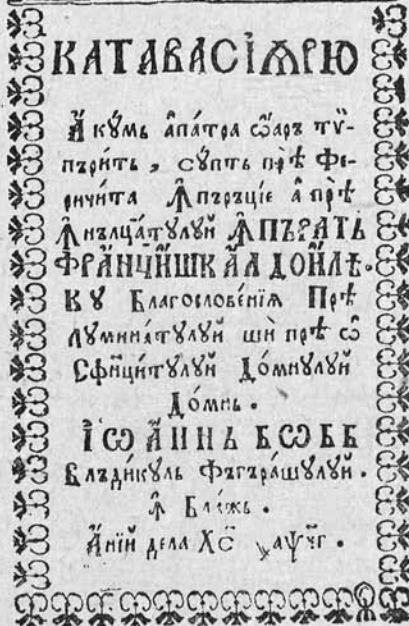 КАТАВАСІѦРЮ
Акꙋмь апатра ѡ҆аръ ти-
пърить, сꙋпть прѣ Фе-
ричита Ꙟпъръціе а прѣ
Ꙟнълцатꙋлꙋй ꙞПЪРАТЬ
ФРАНЧИШК АЛ ДОИЛѢ.
Кꙋ Благословенїѧ Прѣ
лꙋминатꙋлꙋй ши прѣ ѡ
Сфинцитꙋлꙋй Домнꙋлꙋй
Домнь.
ІѠАННЬ БѠББ
Владикꙋль Фъгърашꙋлꙋй.
Ꙟ Блажь.
Аний дела Хс҃ ҂аѱчг.